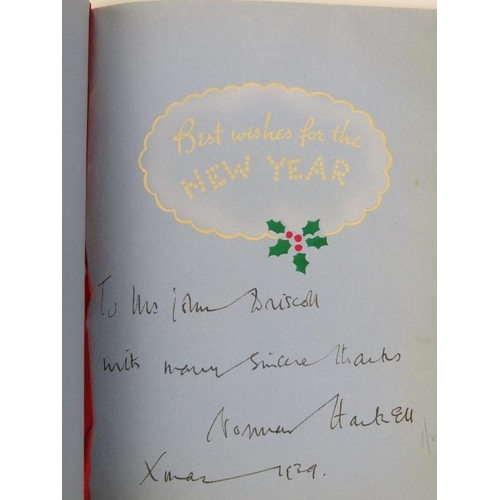 Best wishes for the
NEW YEAR
To Mrs John Driscoll
with many sincere thanks
Norman Hartnell
Xmas 1939.